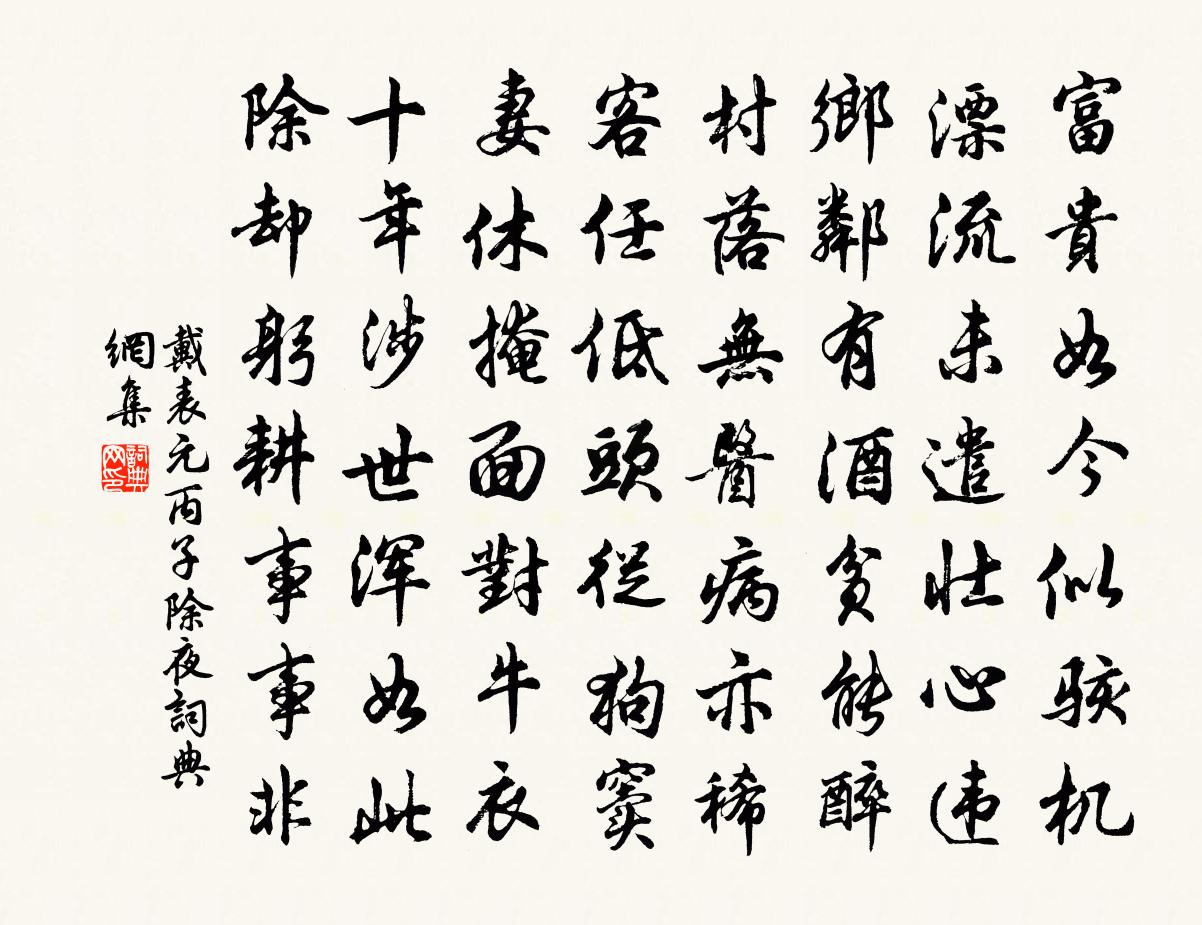 富貴如今似駭机
漂流未遣壮心违
鄉鄰有酒貧能醉
村落無醫病亦稀
客任低頭從狗竇
妻休掩面對牛衣
十年涉世浑如此
除却躬耕事事非
戴表元丙子除夜詞典
網集
詞典
网印